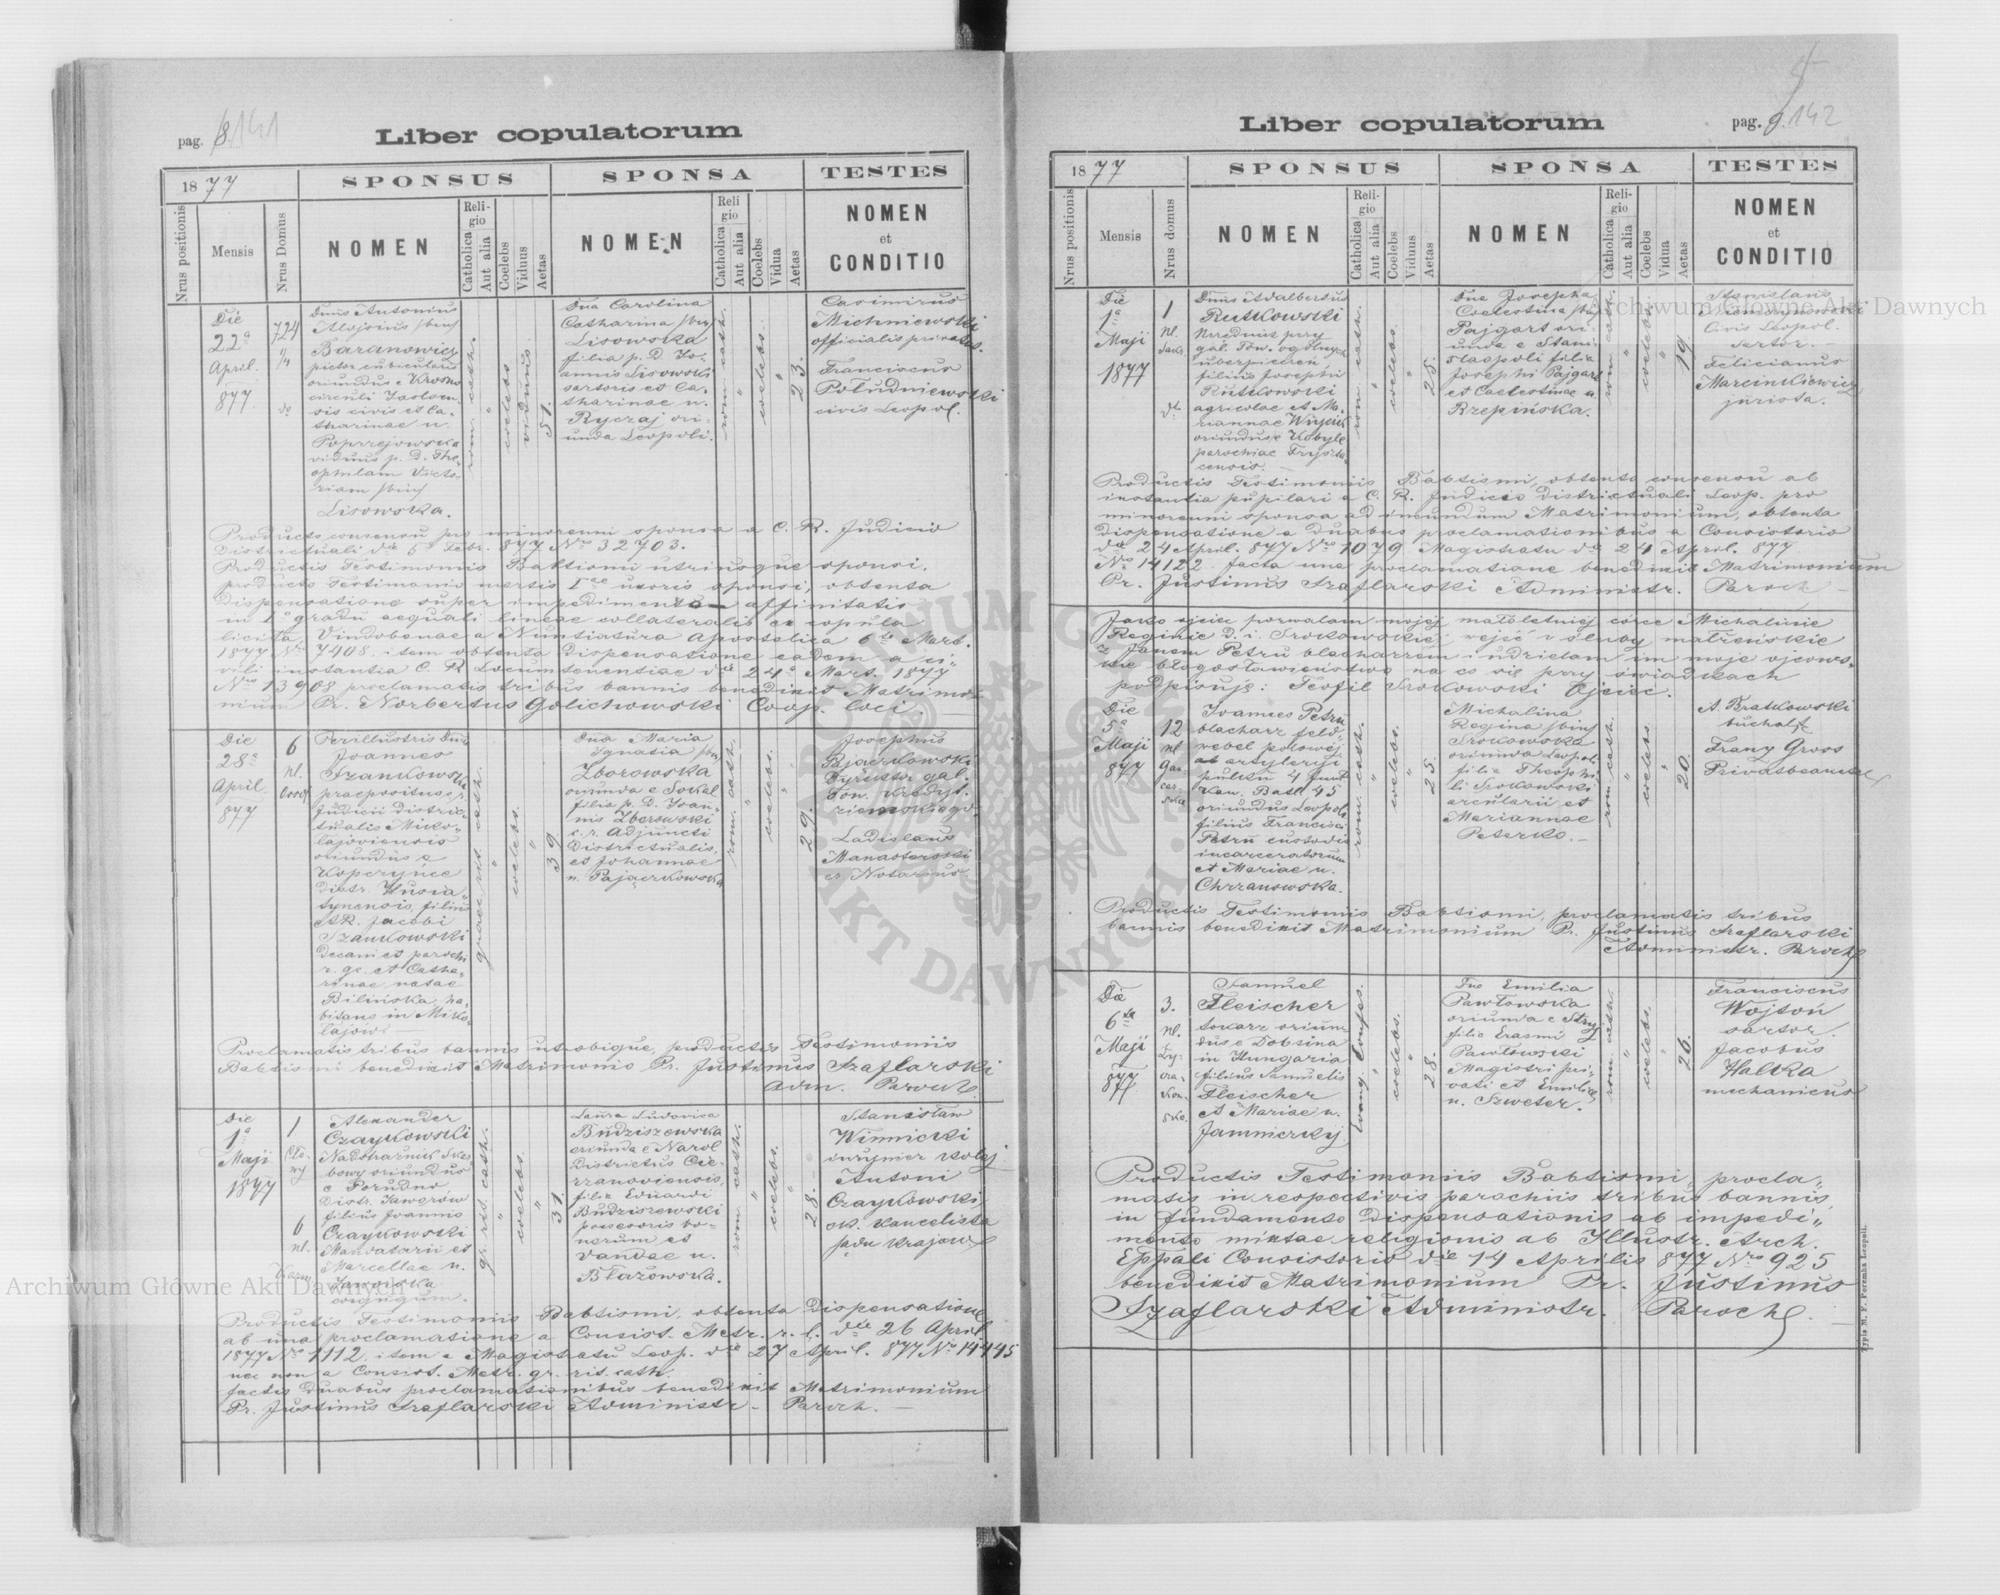 pag. 8. 141
Liber copulatorum
1877
SPONSUS
SPONSA
TESTES
Nrus positionis
Mensis
Nrus Domus
NOMEN
Religio
Catholica
Aut alia
Coelebs
Viduus
Aetas
NOMEN
Religio
Catholica
Aut alia
Coelebs
Vidua
Aetas
NOMEN
et
CONDITIO
Die
22a
April.
877.
724
1/4
Dnus Antonius
Aloisius
Baranowicz
pictor cubicularius
oriundus e Krosno
circuli Jasloen-
sis civis et Ca-
tharinae n.
Poprzejowska
viduus p. D. The-
ophilam Victo-
riam
Lisowska.
rom. cath.
coelebs
viduus
51.
Dna Carolina
Catharina
Lisowska
filia p. D. Jo-
annis Lisowski
sartoris et Ca-
tharinae n.
Rycraj ori-
unda Leopoli.
rom. cath.
coelebs
23.
Casimirus
Michniewski
officialis privatus.
Franciscus
Południewski
civis Leopol.
Producto consensu pro minorenni sponsa a C. R. Judicio
Districtuali dto 6 Febr. 877 Nro 32703.
Productis Testimoniis Babtismi utriusque sponsi,
producto Testimonio mortis Iae uxoris sponsi, obtenta
Dispensatione super impedimento affinitatis
in Io gradu aequali lineae collateralis ex copula
licita, Vindobonae a Nuntiatura Apostolica 6to Mart.
1877 Nro 7408. item obtenta Dispensatione eadem a ci-
vili instantia C. R. Locumtenentiae dto 24a Mart. 1877
Nro 13908 proclamatis tribus bannis benedixit Matrimo-
nium Pr. Norbertus Golichowski Coop. loci.
Die
28a
April
877
6
pl.
Perillustris Dnus
Joannes
Szankowski
praepositus
Judicii Distric-
tualis Miko-
lajoviensis
oriundus e
Koperynce
Distr. Husia-
tynensis, filius
AR. Jacobi
Szankowski
Decani et parochi
r. gr. et Catha-
rinae natae
Bilińska, ha-
bitans in Miko-
lajow.
graeci rit. cath.
coelebs.
39
Dna Maria
Ignatia
Zborowska
oriunda e Sokal
filia p. D. Joan-
nis Zborowski
c. r. Adjuncti
Districtualis
et Johannae
n. Pajączkowska
rom. cath.
coelebs.
29.
Josephus
Pajączkowski
Dyrektor gal.
Tow. Kredyt.
ziemskiego.
Ladislaus
Manasterski
cr. Notarius.
Proclamatis tribus bannis utrobique, productis Testimoniis
Babtismi benedixit Matrimonio Pr. Justinus Szaflarski
Adm. Paroch.
Die
1a
Maji
1877
1
6
pl.
Alexander
Czaykowski
Nadstrażnik Skar-
bowy oriundus
e Porudno
Distr. Jaworów
filius Joannis
Czaykowski
Mandatarii et
Marcellae n.
Jaworska
conjugum.
gr. rit. cath.
coelebs.
31.
Laura Ludovica
Budziszewska
oriunda e Narol
Districtus Cie-
szanoviensis,
filia Eduardi
Budziszewski
possessoris bo-
norum et
Vandae n.
Błazowska.
rom. cath.
coelebs.
28.
Stanisław
Winnicki
inzynier kolej.
Antoni
Czaykowski,
ck. kancelista
sądu krajow.
Productis Testimoniis Babtismi, obtenta Dispensatione
ab una proclamatione a Consist. Metr. r. l. dto 26 April.
1877 Nro 1112. item a Magistratu Leop. dto 27 April. 877 Nro 14445
nec non a Consist. Metr. gr. rit. cath.
factis duabus proclamationibus benedixit Matrimonium
Pr. Justinus Szaflarski Administr. Paroch.
pag. 9. 142
Liber copulatorum
1877
SPONSUS
SPONSA
TESTES
Nrus positionis
Mensis
Nrus domus
NOMEN
Religio
Catholica
Aut alia
Coelebs
Viduus
Aetas
NOMEN
Religio
Catholica
Aut alia
Coelebs
Vidua
Aetas
NOMEN
et
CONDITIO
Die
1a
Maji
1877
1
pl.
Dnus Adalbertus
Rutkowski
Urzednik przy
gal. Tow. ogólnych
ubezpieczeń
filius Josephi
Rutkowski
agricolae et Ma-
riannae Wujcik
oriundus e Kobyle
parochiae Fryszta-
censis.
rom. cath.
coelebs
28.
Dna Josepha
Coelestina
Pajgart ori-
unda e Stani-
slaopoli filia
Josephi Pajgart
et Coelestinae n.
Rzepińska.
rom. cath.
coelebs.
19
Stanislaus
civis Leopol.
sartor.
Felicianus
Marcinkiewicz
jurista.
Productis Testimoniis Babtismi, obtento consensu ab
instantia pupilari a C. R. Judicio Districtuali Leop. pro
minorenni sponsa ad ineundum Matrimonium, obtenta
Dispensatione a duabus proclamationibus a Consistorio
dto 24 April. 877 Nro 1079 Magistratu dto 24 April. 877
Nro 14122 facta una proclamatione benedixit Matrimonium
Pr. Justinus Szaflarski Administr. Paroch.
Jako ojciec pozwalam mojej małoletniej córce Michalinie
Reginie D. i. Srokowskiej wejść w śluby małżeńskie
z Janem Petru blacharzem i udzielam im moje ojcows-
kie błogosławieństwo na co się przy świadkach
podpisuję: Teofil Srokowski Ojciec.
Die
5a
Maji
877
12
pl.
Gar-
car-
ska
Joannes Petru
blacharz feld-
webel polowej
artyleryi
pułku 4 Fuss
Kan. Batl. 45
oriundus Leopoli
filius Francisci
Petru custodis
incarceratorum
et Mariae n.
Chrzanowska.
rom. cath.
coelebs.
25.
Michalina
Regina
Srokowska
oriunda Leopol.
filia Theophi-
li Srokowski
arcularii et
Mariannae
Peterko.
rom. cath.
coelebs.
20.
A. Bratkowski
buchalt.
Franz Gross
Privatbeamte
Productis Testimoniis Babtismi, proclamatis tribus
bannis benedixit Matrimonium Pr. Justinus Szaflarski
Administr. Paroch.
Die
6ta
Maji
877
3.
pl.
Ły-
cza-
kow-
ska.
Samuel
Fleischer
tokarz oriun-
dus e Dobsina
in Hungaria
filius Samuelis
Fleischer
et Mariae n.
Jamnierzky
Evang. Confes.
coelebs.
28.
Dna Emilia
Pawłowska
oriunda e Stryj
filia Erasmi
Pawłowski
Magistri pri-
vati et Emilia
n. Szweter.
rom. cath.
coelebs.
26.
Franciscus
Wojtoń
sartor.
Jacobus
Halka
mechanicus
Productis Testimoniis Babtismi, procla-
matis in respectivis parochiis tribus bannis,
in fundamento Dispensationis ab impedi-
mento mixtae religionis ab Illustr. Arch.
Eppali Consistorio dto 14 Aprilis 877 Nro 925
benedixit Matrimonium Pr. Justinus
Szaflarski Administr. Paroch.
Typis M. F. Poremba Leopoli.
Archiwum Główne Akt Dawnych
Archiwum Główne Akt Dawnych
ARCHIWUM GŁÓWNE AKT DAWNYCH